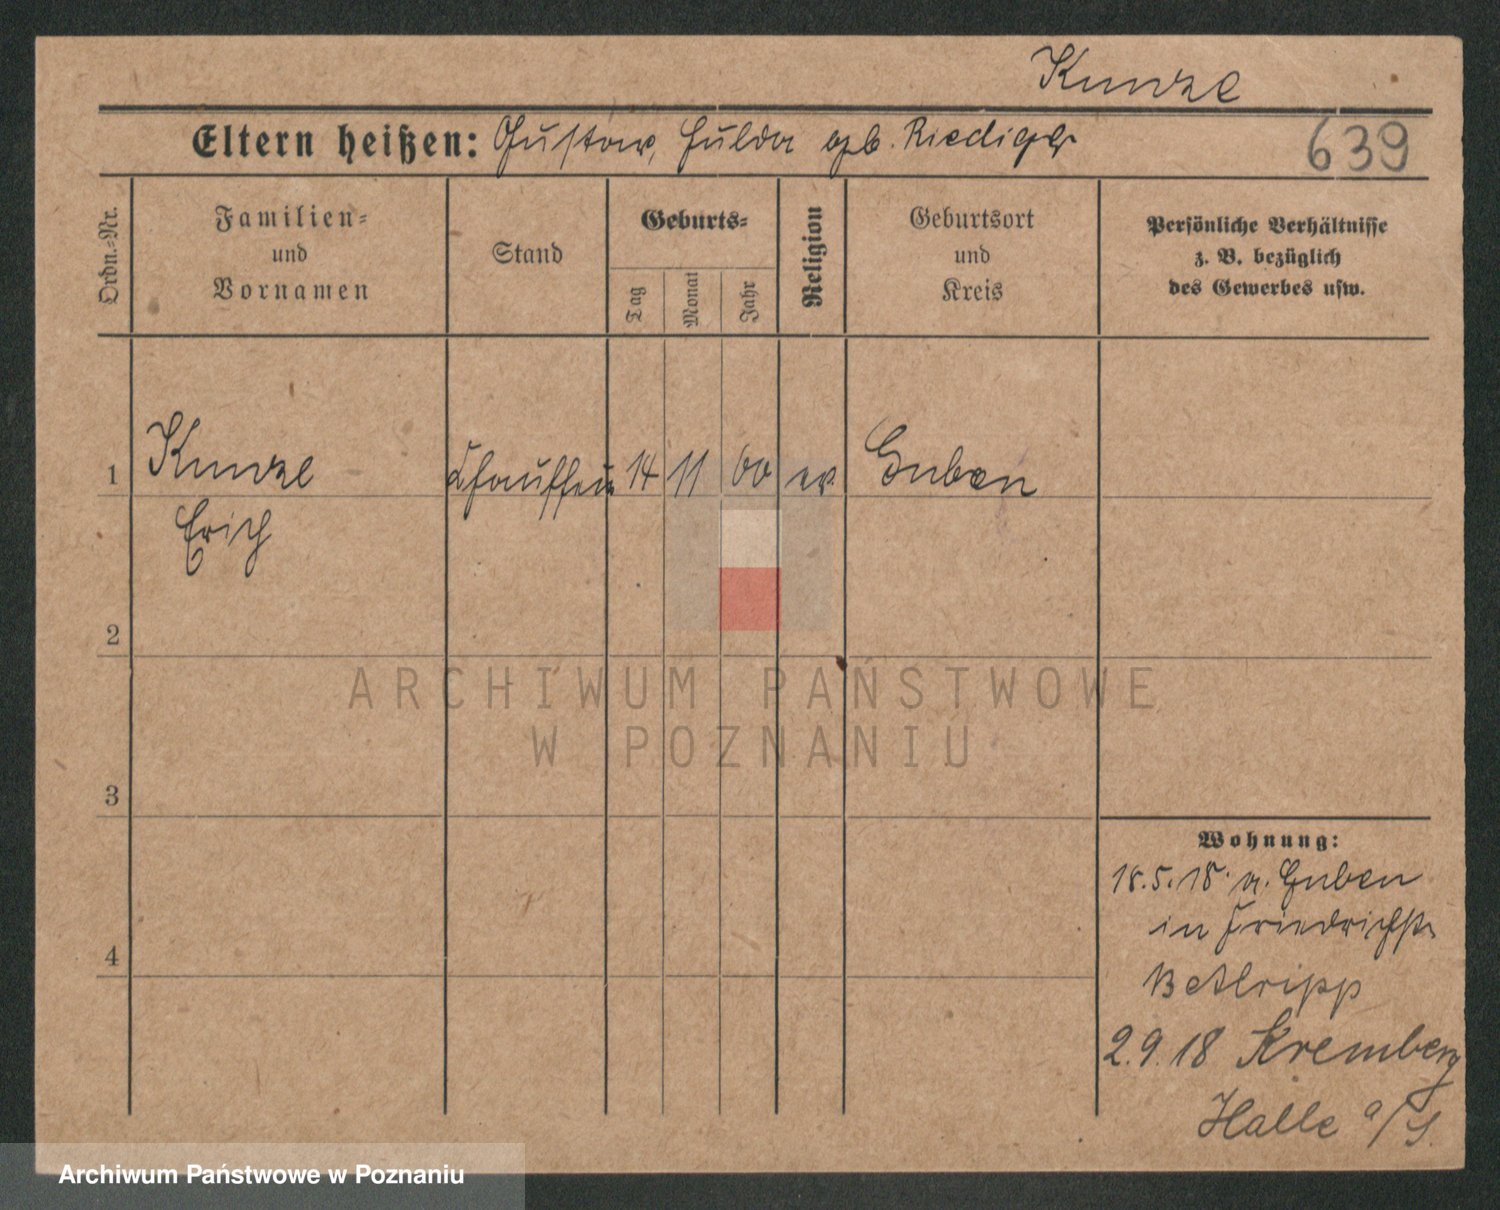 Kunze
Eltern heißen: Gustav, Hulda geb. Riediger
639
Ordn.=Nr.
Familien=
und
Vornamen
Stand
Geburts=
Tag
Monat
Jahr
Religion
Geburtsort
und
Kreis
Persönliche Verhältnisse
z. B. bezüglich
des Gewerbes usw.
1
Kunze
Chauffeur
14
11
00
ev.
Guben
Erich
2
ARCHIWUM PAŃSTWOWE
W POZNANIU
3
Wohnung:
18.5.18 v. Guben
in Friedrichstr
13
4
2.9.18 Kremberg
Halle a/S.
Archiwum Państwowe w Poznaniu